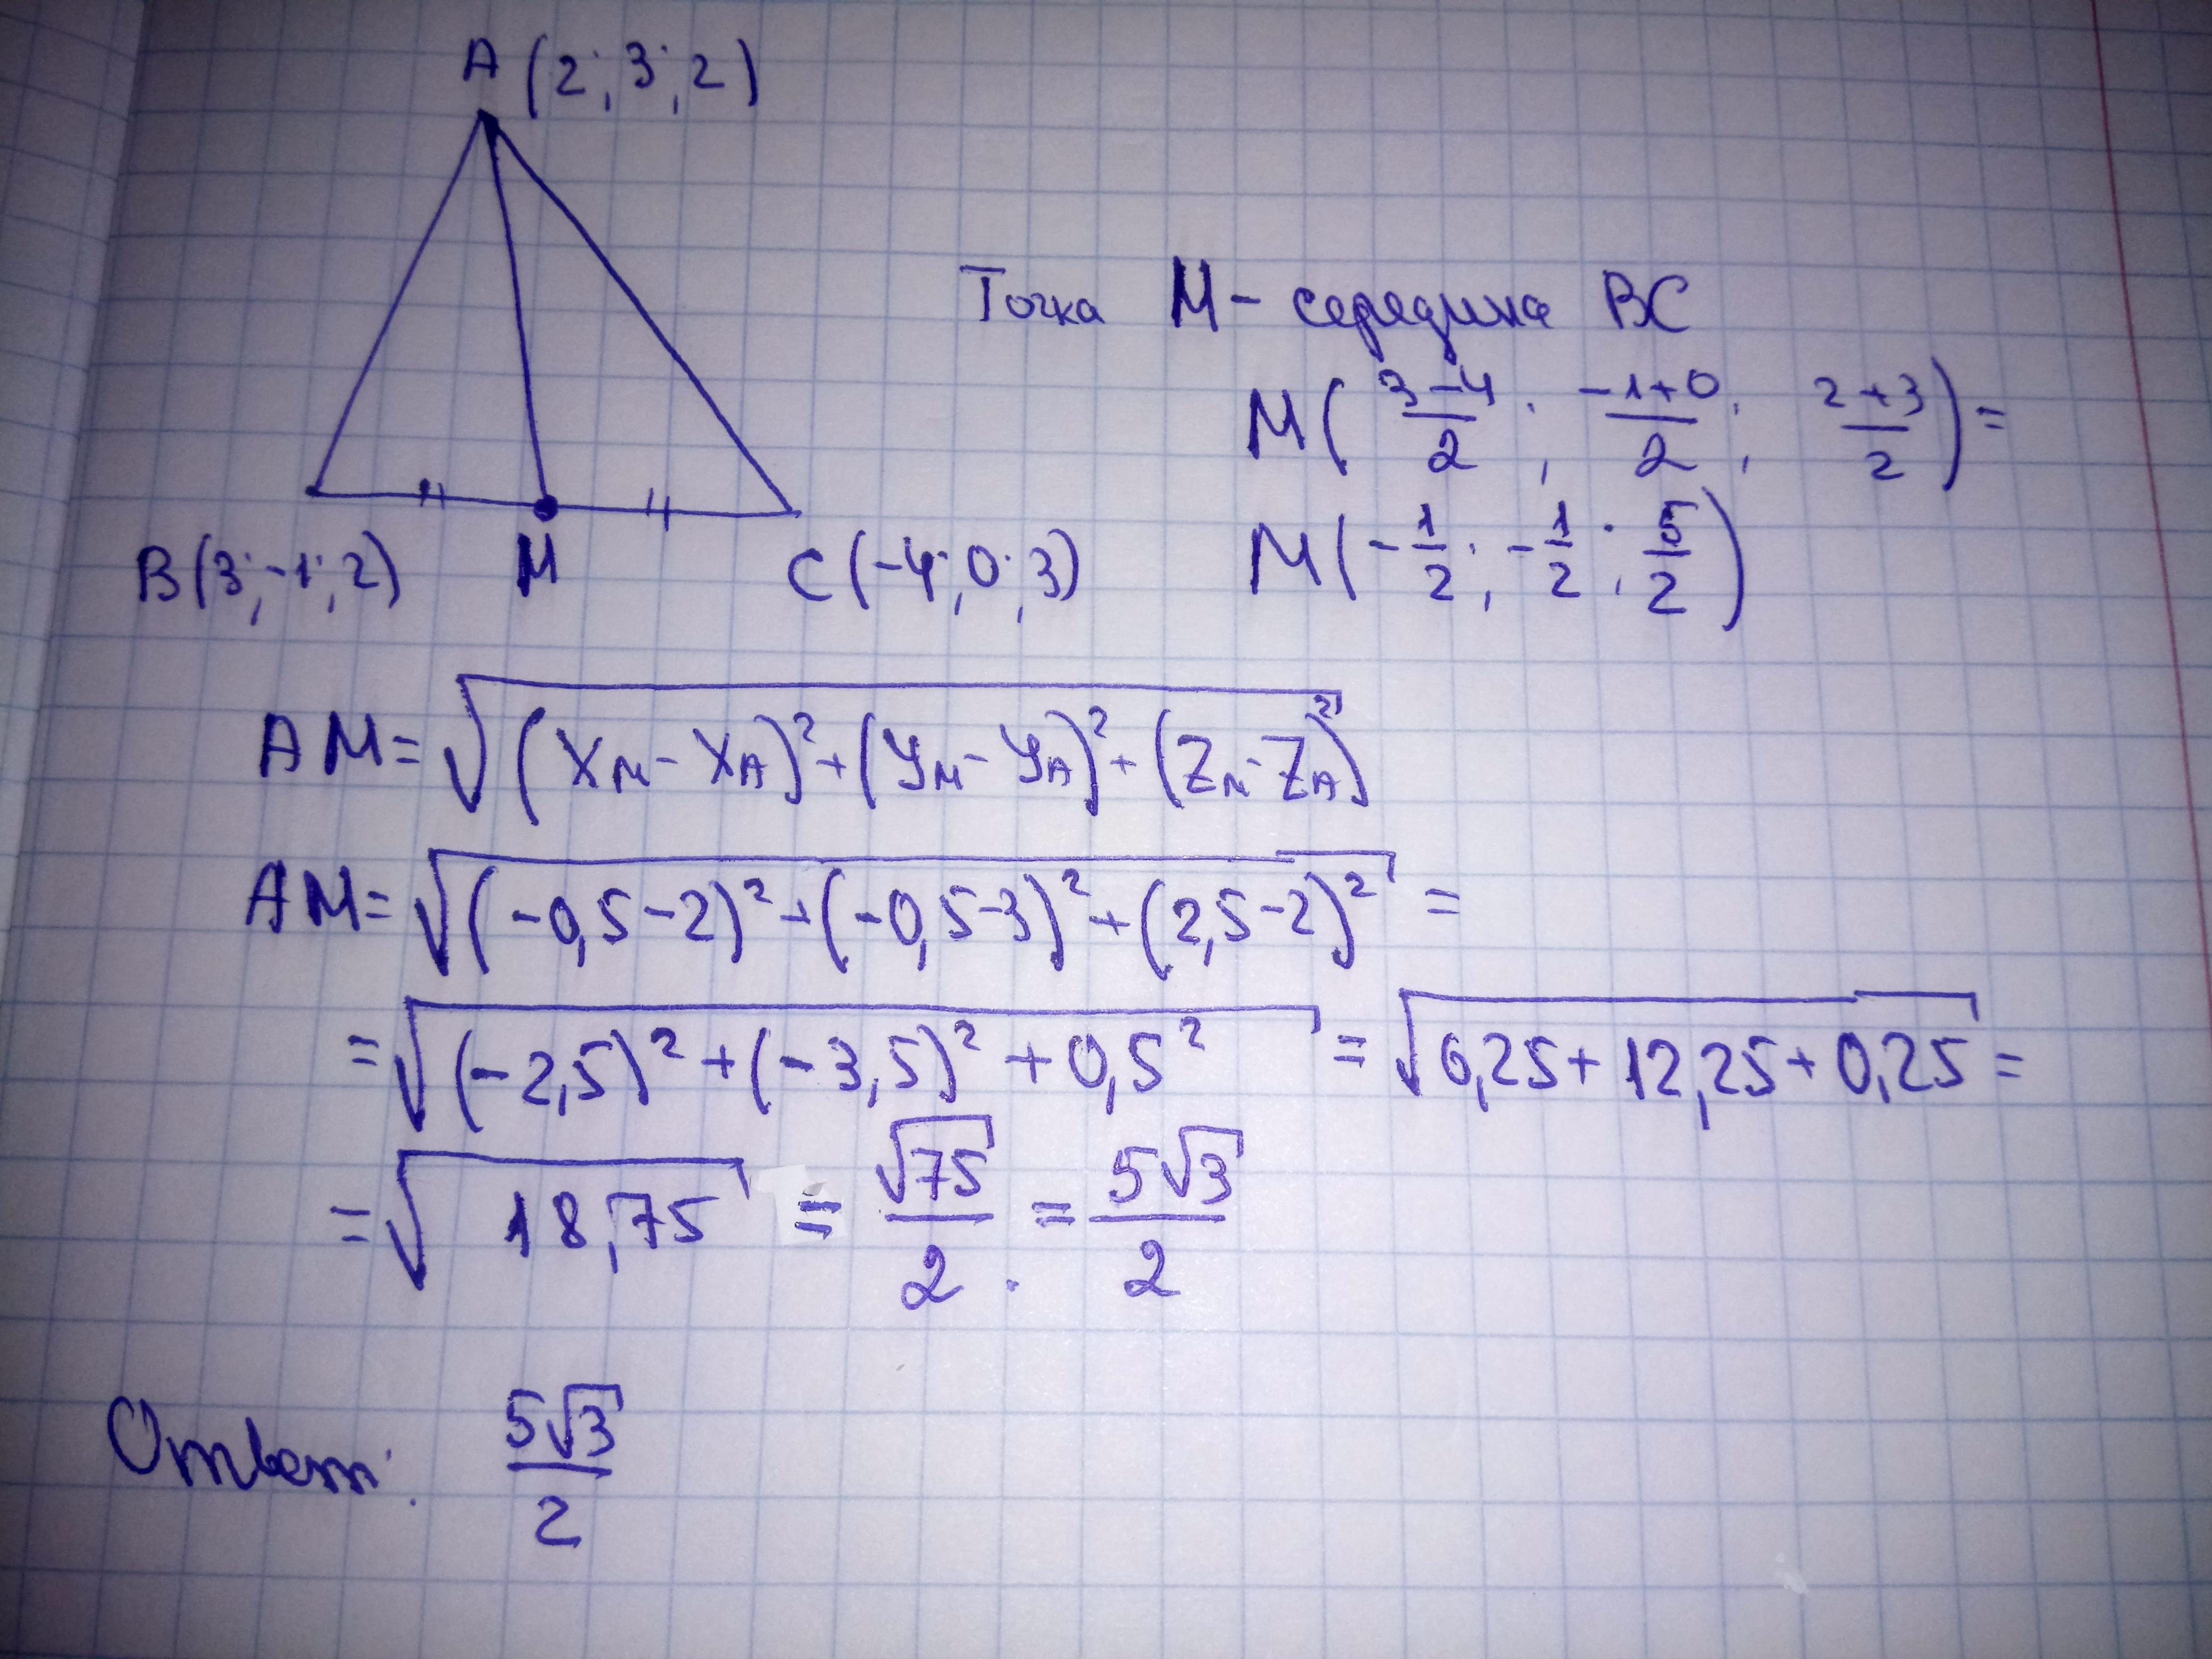 A (2; 3; 2)
B(3; -1; 2) M C(-4; 0; 3)
Точка M - середина BC
M( (3-4)/2 ; (-1+0)/2 ; (2+3)/2 ) =
M( -1/2 ; -1/2 ; 5/2 )
AM = √((x_M - x_A)² + (y_M - y_A)² + (z_M - z_A)²)
AM = √((-0,5-2)² + (-0,5-3)² + (2,5-2)²) =
= √((-2,5)² + (-3,5)² + 0,5²) = √(6,25 + 12,25 + 0,25) =
= √18,75 = √75/2 . = 5√3/2
Ответ: 5√3/2